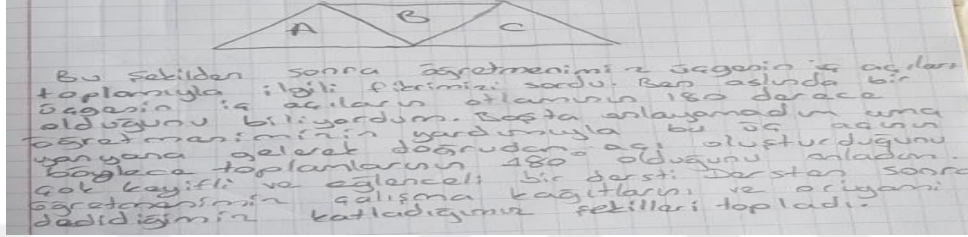 A B C
Bu şekilden sonra öğretmenimiz üçgenin iç açıları
toplamıyla ilgili fikrimizi sordu. Ben aslında bir
üçgenin iç açıların otlamının 180 derece
olduğunu biliyordum. Başta anlayamadım ama
öğretmenimizin yardımıyla bu üç açının
yanyana gelerek doğrudan açı oluşturduğunu
böylece toplamlarının 180° olduğunu anladım.
Çok keyifli ve eğlenceli bir dersti Dersten sonra
öğretmenimin çalışma kağıtlarını ve origami
dedidiğimiz katladığımız şekilleri topladı.